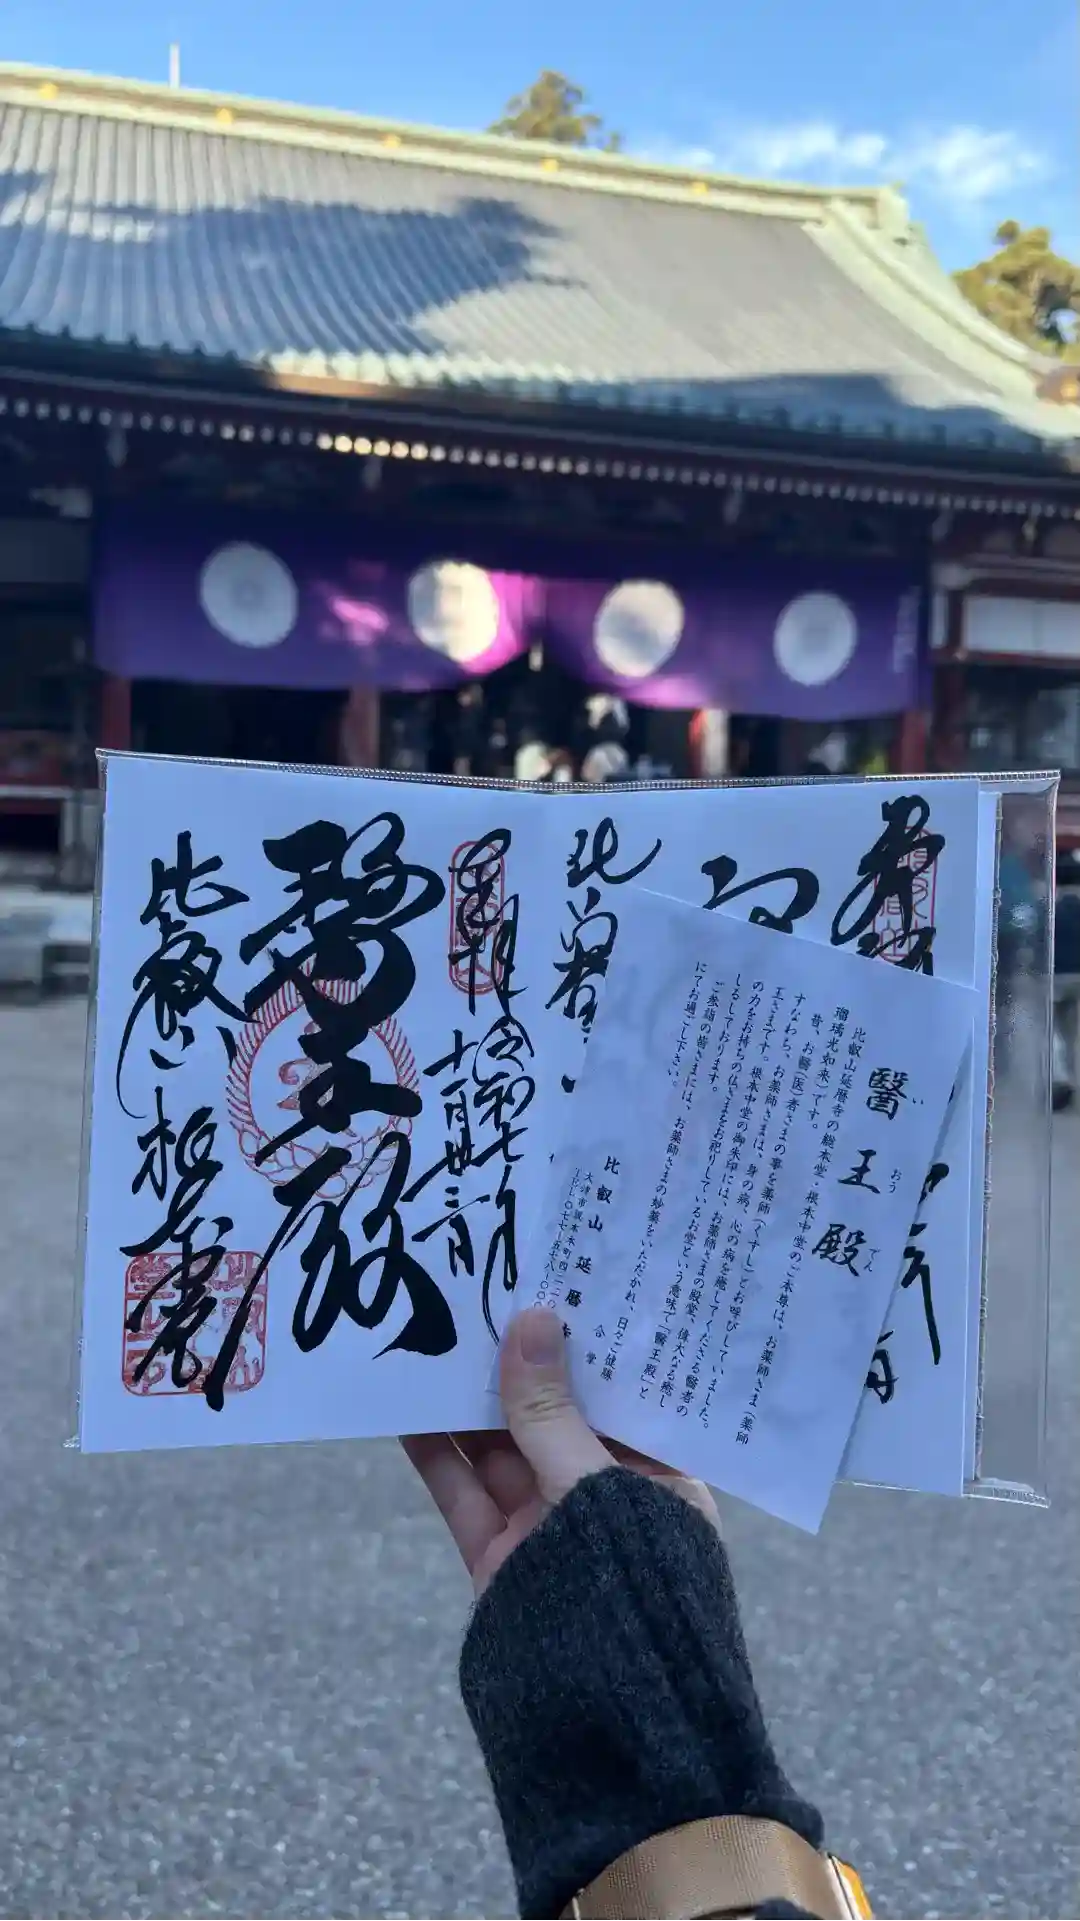 醫王殿
い
おう
でん
比叡山延暦寺の総本堂・根本中堂のご本尊は、お薬師さま（薬師
瑠璃光如来）です。
昔、お醫（医）者さまの事を薬師（くすし）とお呼びしていました。
すなわち、お薬師さまは、身の病、心の病を癒してくださる醫者の
王さまです。根本中堂の御朱印には、お薬師さまの殿堂、偉大なる癒し
の力をお持ちの仏さまをお祀りしているお堂という意味で「醫王殿」と
しるしております。
ご参詣の皆さまには、お薬師さまの妙薬をいただかれ、日々ご健勝
にてお過ごし下さい。
合掌
比叡山延暦寺
大津市坂本本町四二二〇
奉拝
令和七年
十一月廿三日
醫王殿
比叡山根本中堂